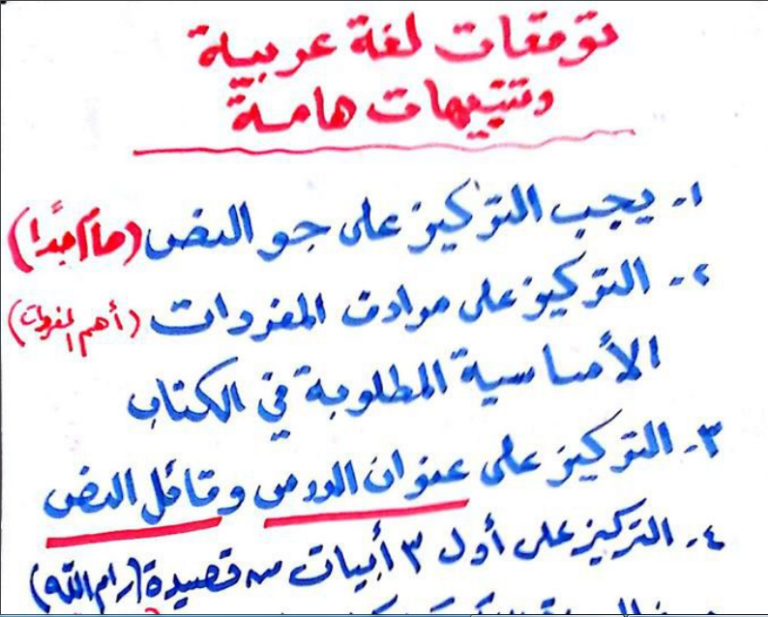 توقعات لغة عربية
وتنبيهات هامة
١- يجب التركيز على جو النص (هام جداً)
٢- التركيز على مرادف المفردات (أهم المفردات)
الأساسية المطلوبة في الكتاب
٣- التركيز على عنوان الدرس وقائل النص
٤- التركيز على أول ٣ أبيات من قصيدة (رام الله)